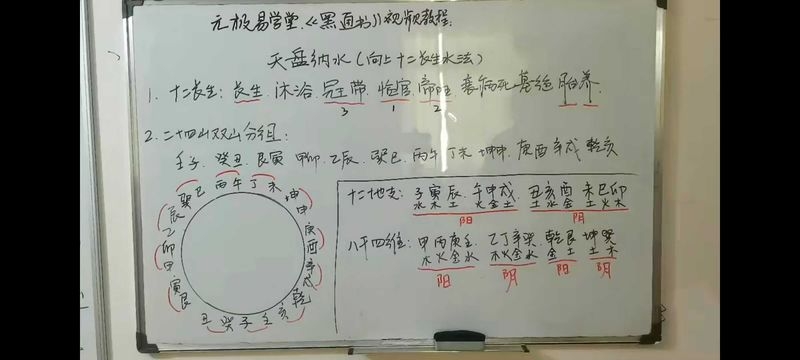 元极易学堂.《黑通书》视频教程:
天盘纳水(向上十二长生水法)
1. 十二长生: 长生 沐浴 冠带 临官 帝旺 衰病死墓绝 胎养
3 1 2
2. 二十四山双山分组:
壬子. 癸丑. 艮寅 甲卯 乙辰. 巽巳 丙午 丁未 坤申 庚酉 辛戌 乾亥
巽巳 丙午 丁未 坤申 庚酉 辛戌 乾亥 壬子 癸丑 艮寅 甲卯 乙辰
十二地支: 子寅辰. 午申戌 丑亥酉 未巳卯
水木土 火金土 土水金 土火木
阳 阴
八干四维: 甲丙庚壬 乙丁辛癸. 乾艮 坤巽
木火金水 木火金水 金土 土木
阳 阴 阳 阴